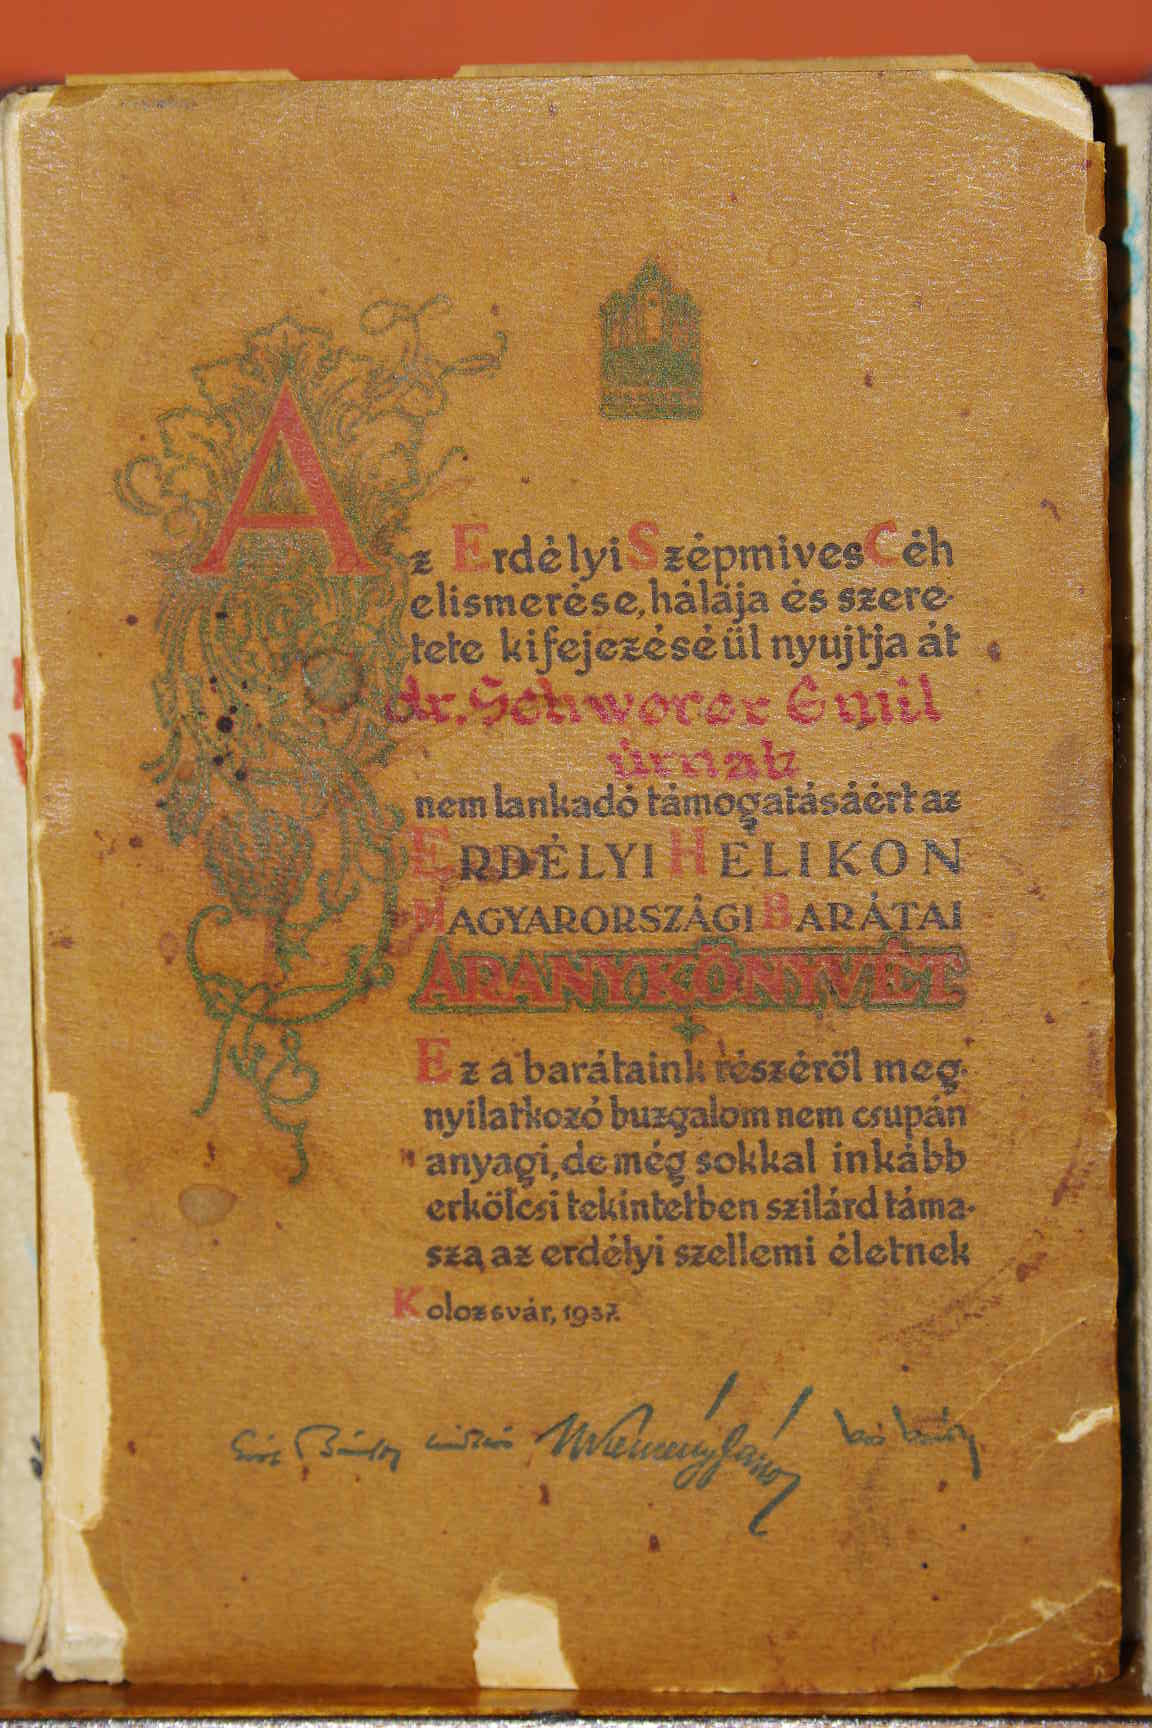 Az Erdélyi Szépmives Céh
elismerése, hálája és szere-
tete kifejezéséül nyujtja át
dr. Schworer Emil
úrnak
nem lankadó támogatásáért az
ERDÉLYI HELIKON
MAGYARORSZÁGI BARÁTAI
ARANYKÖNYVÉT
Ez a barátaink részéről meg-
nyilatkozó buzgalom nem csupán
anyagi, de még sokkal inkább
erkölcsi tekintetben szilárd táma-
sza az erdélyi szellemi életnek
Kolozsvár, 1937.
Kemény János